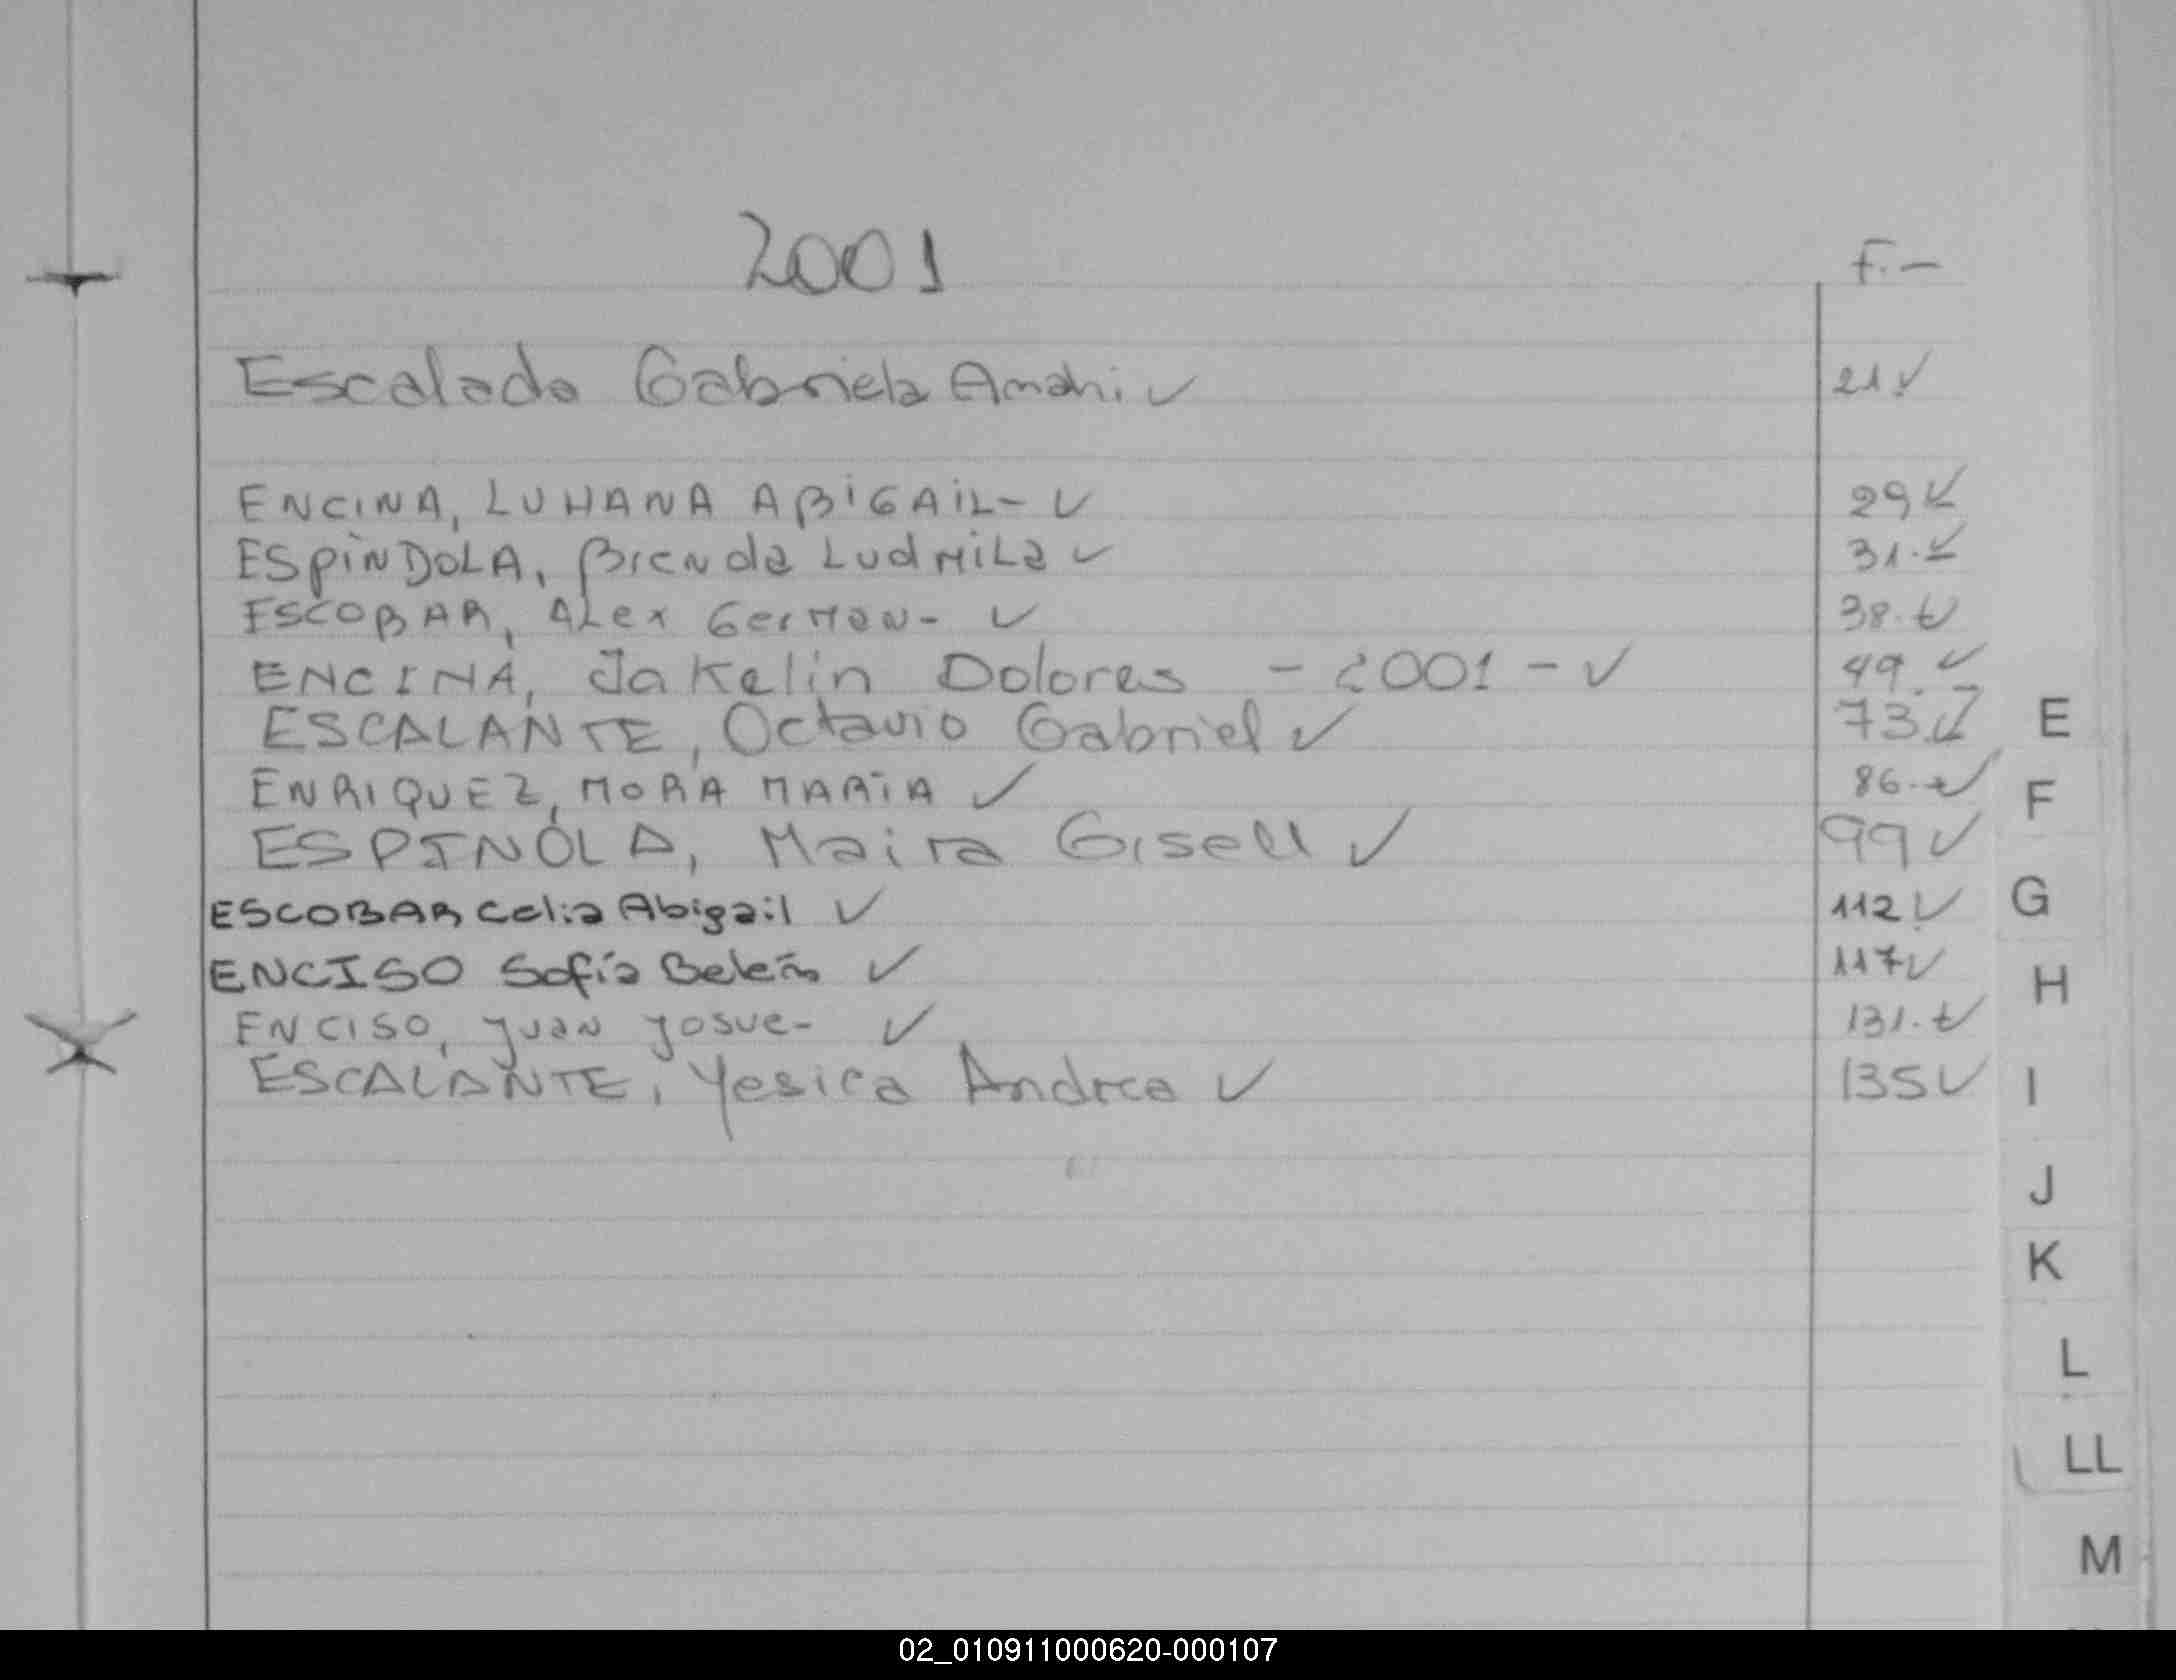 2001
F.-
Escalada Gabriela Amahi ✓ 21 ✓
ENCINA, LUHANA ABIGAIL- ✓ 29 ✓
ESPINDOLA, Brenda Ludmila ✓ 31.✓
ESCOBAR, ALex German- ✓ 38.✓
ENCINA, Jakelin Dolores - 2001 - ✓ 49.✓
ESCALANTE, Octavio Gabriel ✓ 73.✓
ENRIQUEZ, MORA MARIA ✓ 86.✓
ESPINOLA, Maira Gisell ✓ 99 ✓
ESCOBAR Celia Abigail ✓ 112 ✓
ENCISO Sofía Belén ✓ 117 ✓
ENCISO, Juan Josue- ✓ 131.✓
ESCALANTE, Yesica Andrea ✓ 135 ✓
E
F
G
H
I
J
K
L
LL
M
02_010911000620-000107